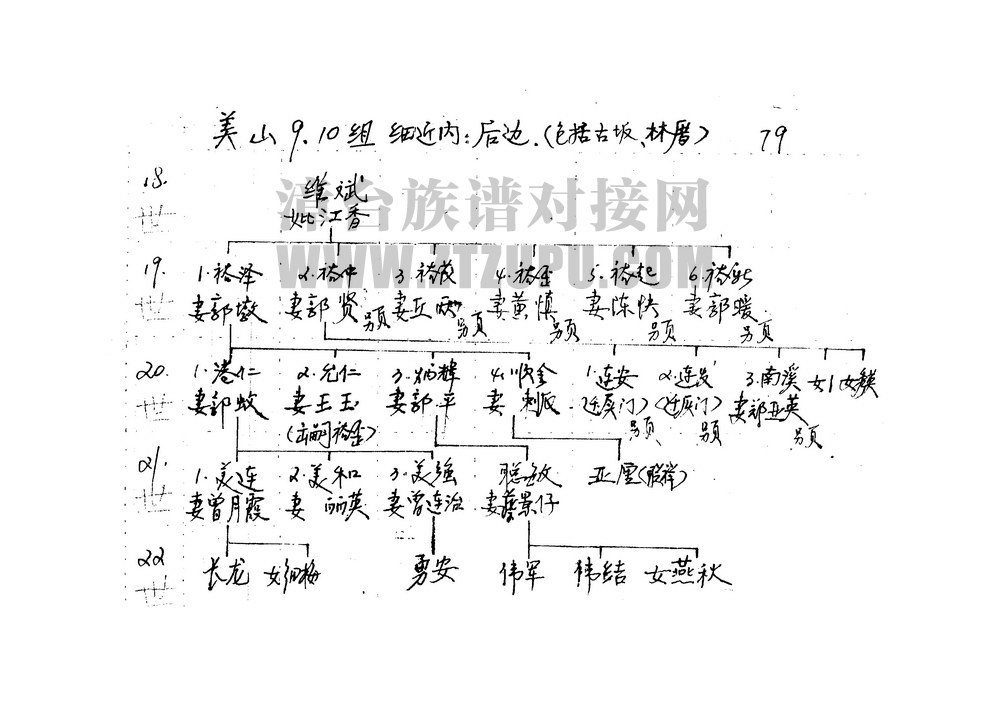 美山9.10组 细近内:后边.(包括古坂、林厝) 79
18. 维斌
世 妣江香
漳台族谱对接网
WWW.ZTZUPU.COM
19. 1.裕泽 2.裕中 3.裕 4.裕 5.裕起 6.裕
世 妻郭 妻郭贤 另页 妻丘 另页 妻黄慎 另页 妻陈快 另页 妻郭暖 另页
20. 1.港仁 2.允仁 3.炳辉 4.收金 1.连安 2.连 3.南溪 女 女
世 妻郭蚊 妻王玉 妻郭平 妻 (迁厦门) (迁厦门) 妻郭亚英
(出嗣裕) 另页 另页 另页
21. 1.美连 2.美和 3.美强 聪敏 亚
世 妻曾月霞 妻丽英 妻曾连治 妻蔡景仔
22 长龙 女细梅 勇安 伟军 伟结 女燕秋
世